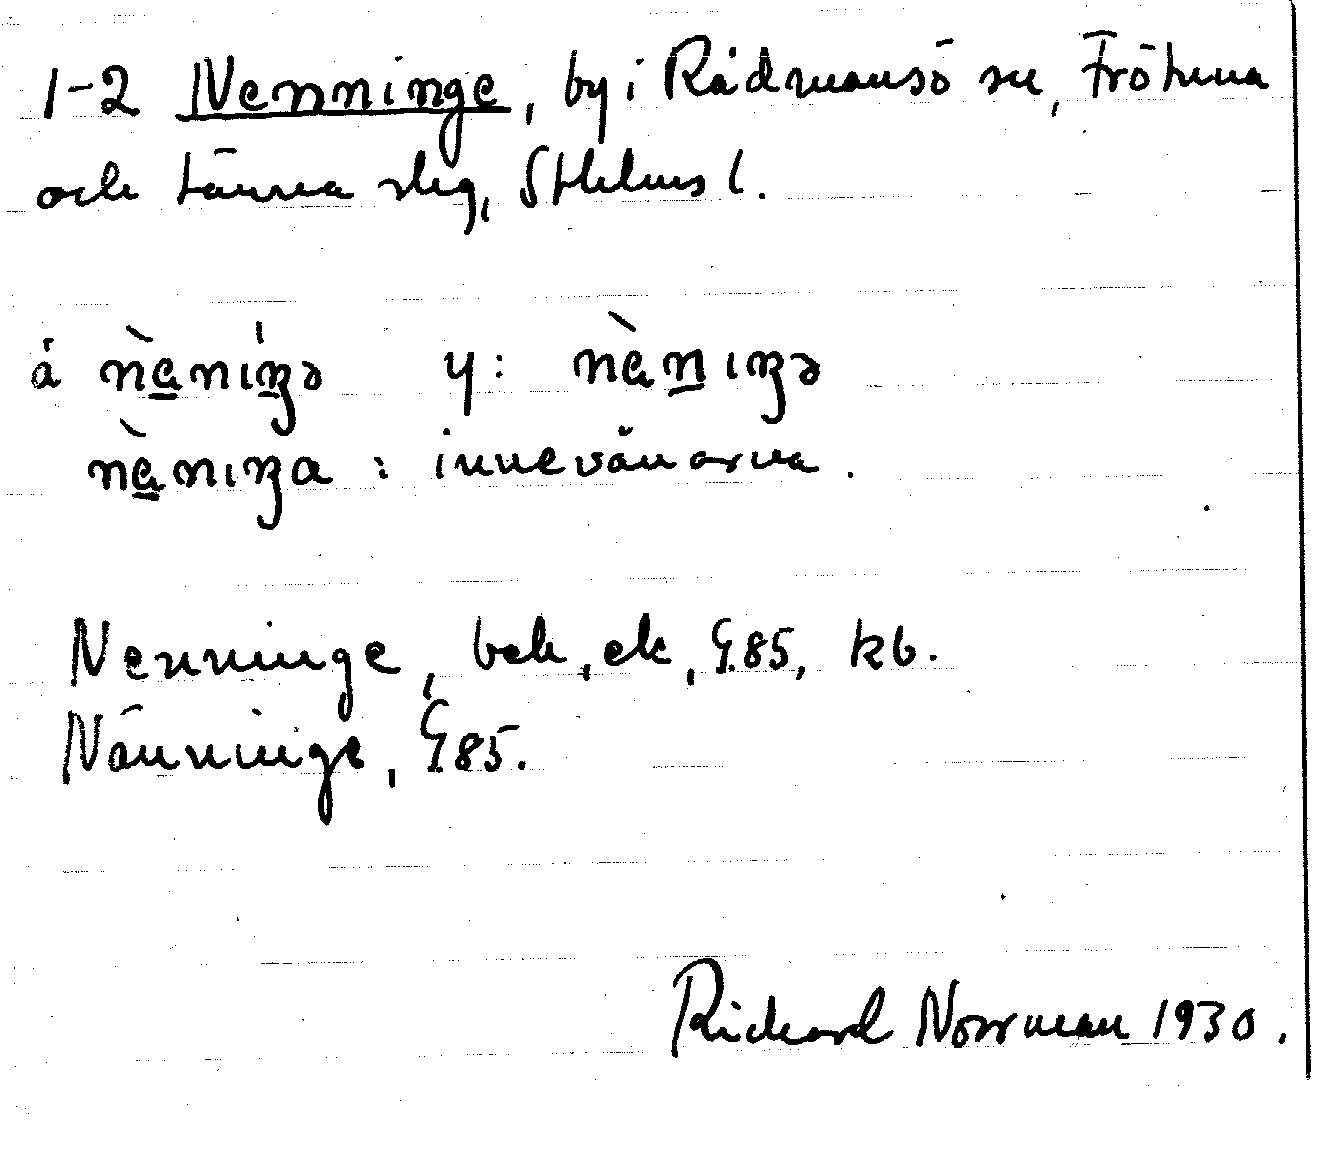 1-2 Nenninge, by i Rådmansö sn, Fröhuna
och Länna skg, Sthlms l.
å nèníŋə y: nèniŋə
nèniŋa : innevånarna.
Nenninge, bek, ek, G.85, kb.
Nänninge, G85.
Richard Norrman 1930.